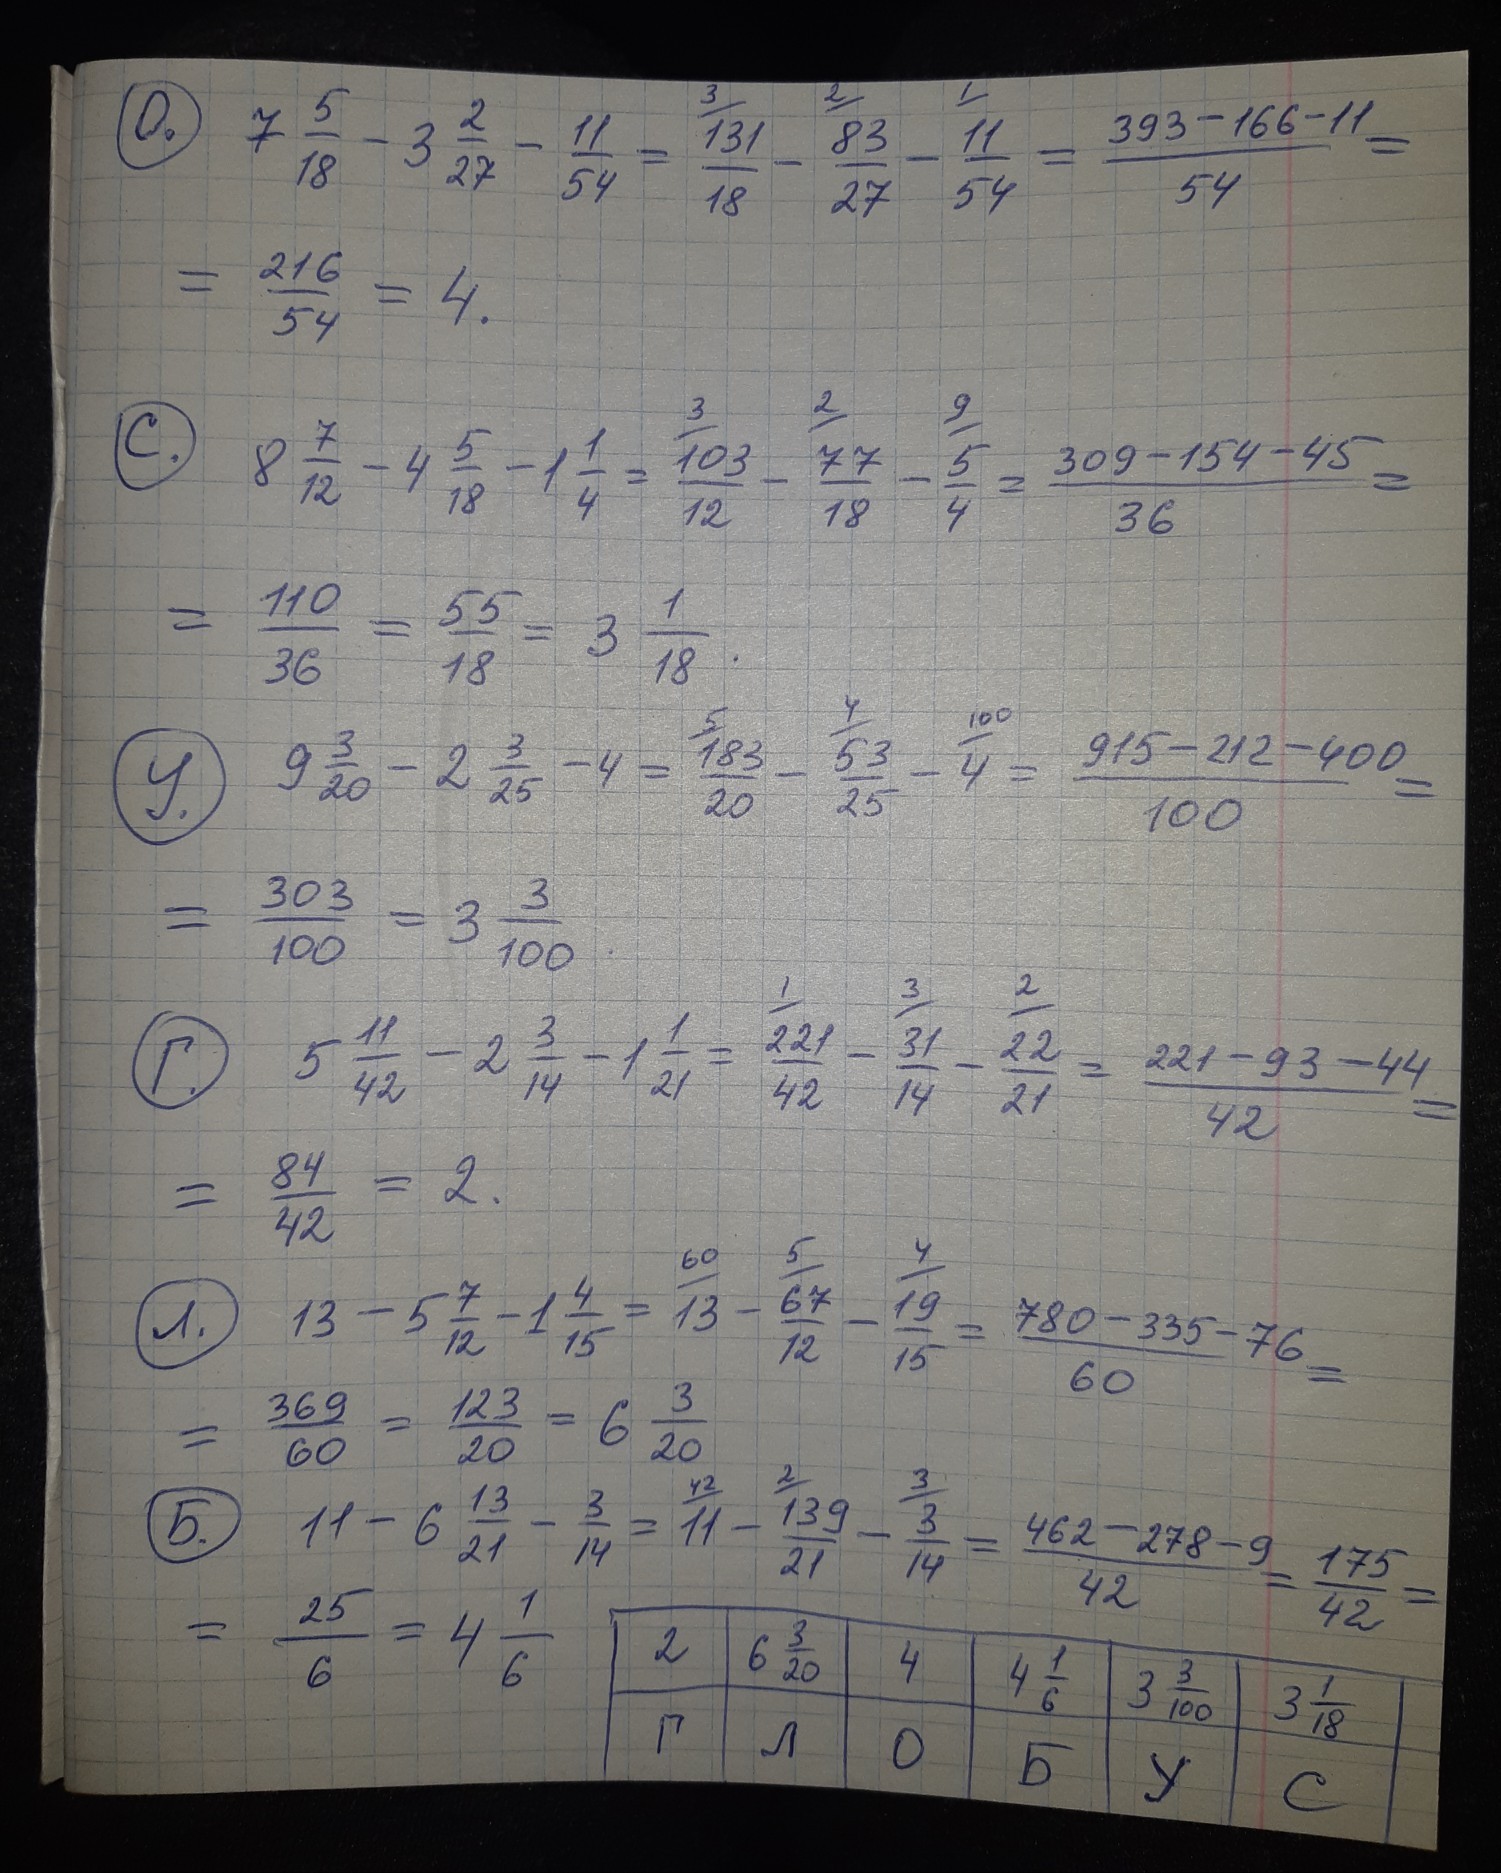 О. 7 5/18 - 3 2/27 - 11/54 = 3/ 131/18 - 2/ 83/27 - 1/ 11/54 = (393-166-11)/54 =
= 216/54 = 4.
С. 8 7/12 - 4 5/18 - 1 1/4 = 3/ 103/12 - 2/ 77/18 - 9/ 5/4 = (309-154-45)/36 =
= 110/36 = 55/18 = 3 1/18.
У. 9 3/20 - 2 3/25 - 4 = 5/ 183/20 - 4/ 53/25 - 100/ 4 = (915-212-400)/100 =
= 303/100 = 3 3/100.
Г. 5 11/42 - 2 3/14 - 1 1/21 = 1/ 221/42 - 3/ 31/14 - 2/ 22/21 = (221-93-44)/42 =
= 84/42 = 2.
Л. 13 - 5 7/12 - 1 4/15 = 60/ 13 - 5/ 67/12 - 4/ 19/15 = (780-335-76)/60 =
= 369/60 = 123/20 = 6 3/20
Б. 11 - 6 13/21 - 3/14 = 42/ 11 - 2/ 139/21 - 3/ 3/14 = (462-278-9)/42 = 175/42 =
= 25/6 = 4 1/6
2 6 3/20 4 4 1/6 3 3/100 3 1/18
Г Л О Б У С